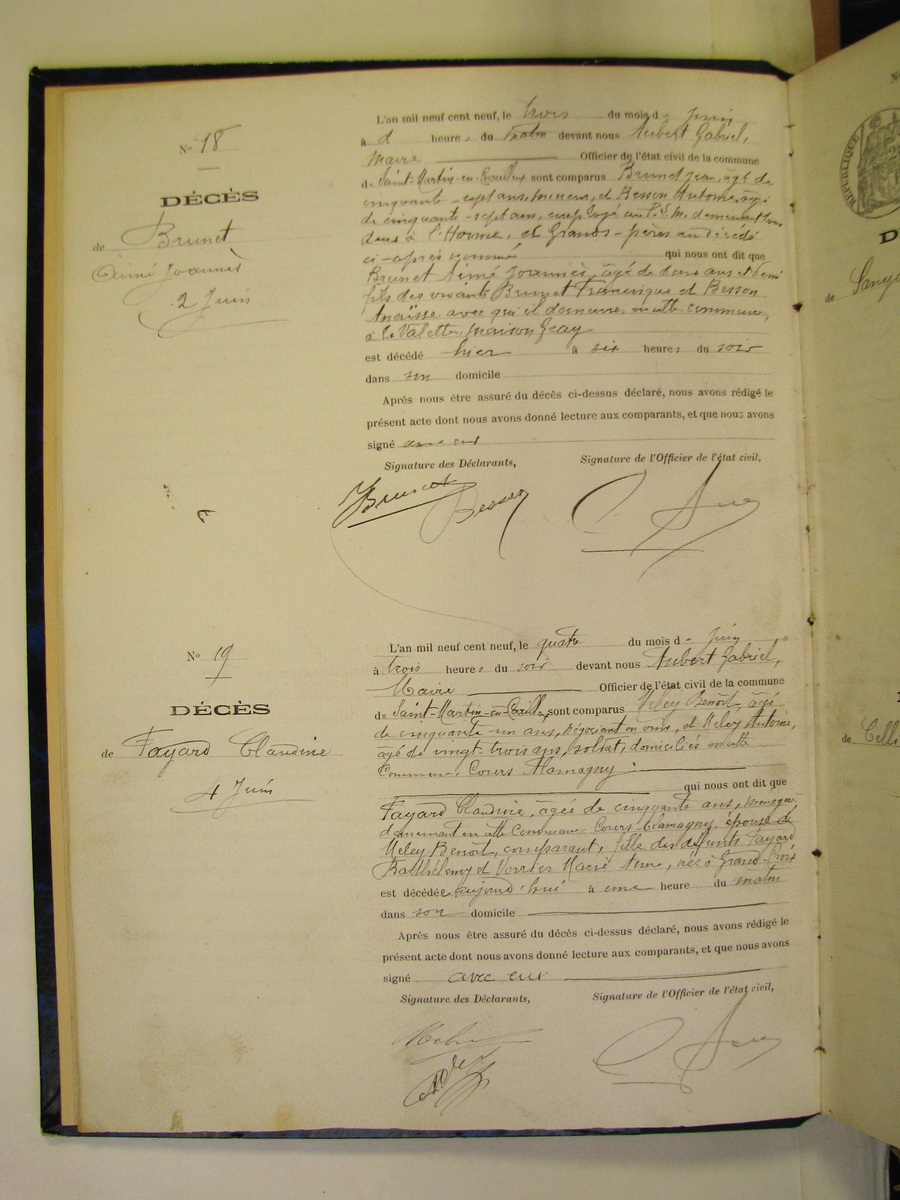 N° 18
DÉCÈS
de Brunet
Aimé Joannès
2 Juin
L'an mil neuf cent neuf, le trois du mois d Juin
à heures du matin devant nous Aubert Gabriel,
Maire Officier de l'état civil de la commune
de Saint-Martin-en-Coailleux sont comparus Brunet Jean, agé de
cinquante-sept ans, mineur, et Besson Antoine, agé
de cinquante-sept ans, employé au P.L.M. demeurant
à l'Horme, et Grands-pères au décédé
ci-après nommé qui nous ont dit que
Brunet Aimé Joannès, âgé de deux ans et demi
fils des vivants Brunet Francisque et Besson
Anaïsse avec qui il demeure en cette commune,
à la Valette maison Geay
est décédé hier à six heures du soir
dans son domicile
Après nous être assuré du décès ci-dessus déclaré, nous avons rédigé le
présent acte dont nous avons donné lecture aux comparants, et que nous avons
signé avec eux
Signature des Déclarants, Signature de l'Officier de l'état civil,
Brunet Besson
N° 19
DÉCÈS
de Fayard Claudine
4 Juin
L'an mil neuf cent neuf, le quatre du mois de juin
à trois heures du soir devant nous Aubert Gabriel,
Maire Officier de l'état civil de la commune
de Saint-Martin-en-Coailleux sont comparus Meley Benoît, âgé
de cinquante un ans, négociant en vins, et Meley Antoine,
âgé de vingt-trois ans, soldat, domiciliés en cette
Commune, Cours Marnagny
qui nous ont dit que
Fayard Claudine, âgée de cinquante ans, ménagère
demeurant en cette Commune Cours Marnagny, épouse de
Meley Benoît, comparant, fille des défunts Fayard
Barthélemy et Verrier Marie Anne, née à Grand-Croix
est décédée aujourd'hui à une heure du matin
dans son domicile
Après nous être assuré du décès ci-dessus déclaré, nous avons rédigé le
présent acte dont nous avons donné lecture aux comparants, et que nous avons
signé avec eux
Signature des Déclarants, Signature de l'Officier de l'état civil,
RÉPUBLIQUE
de
de Celli